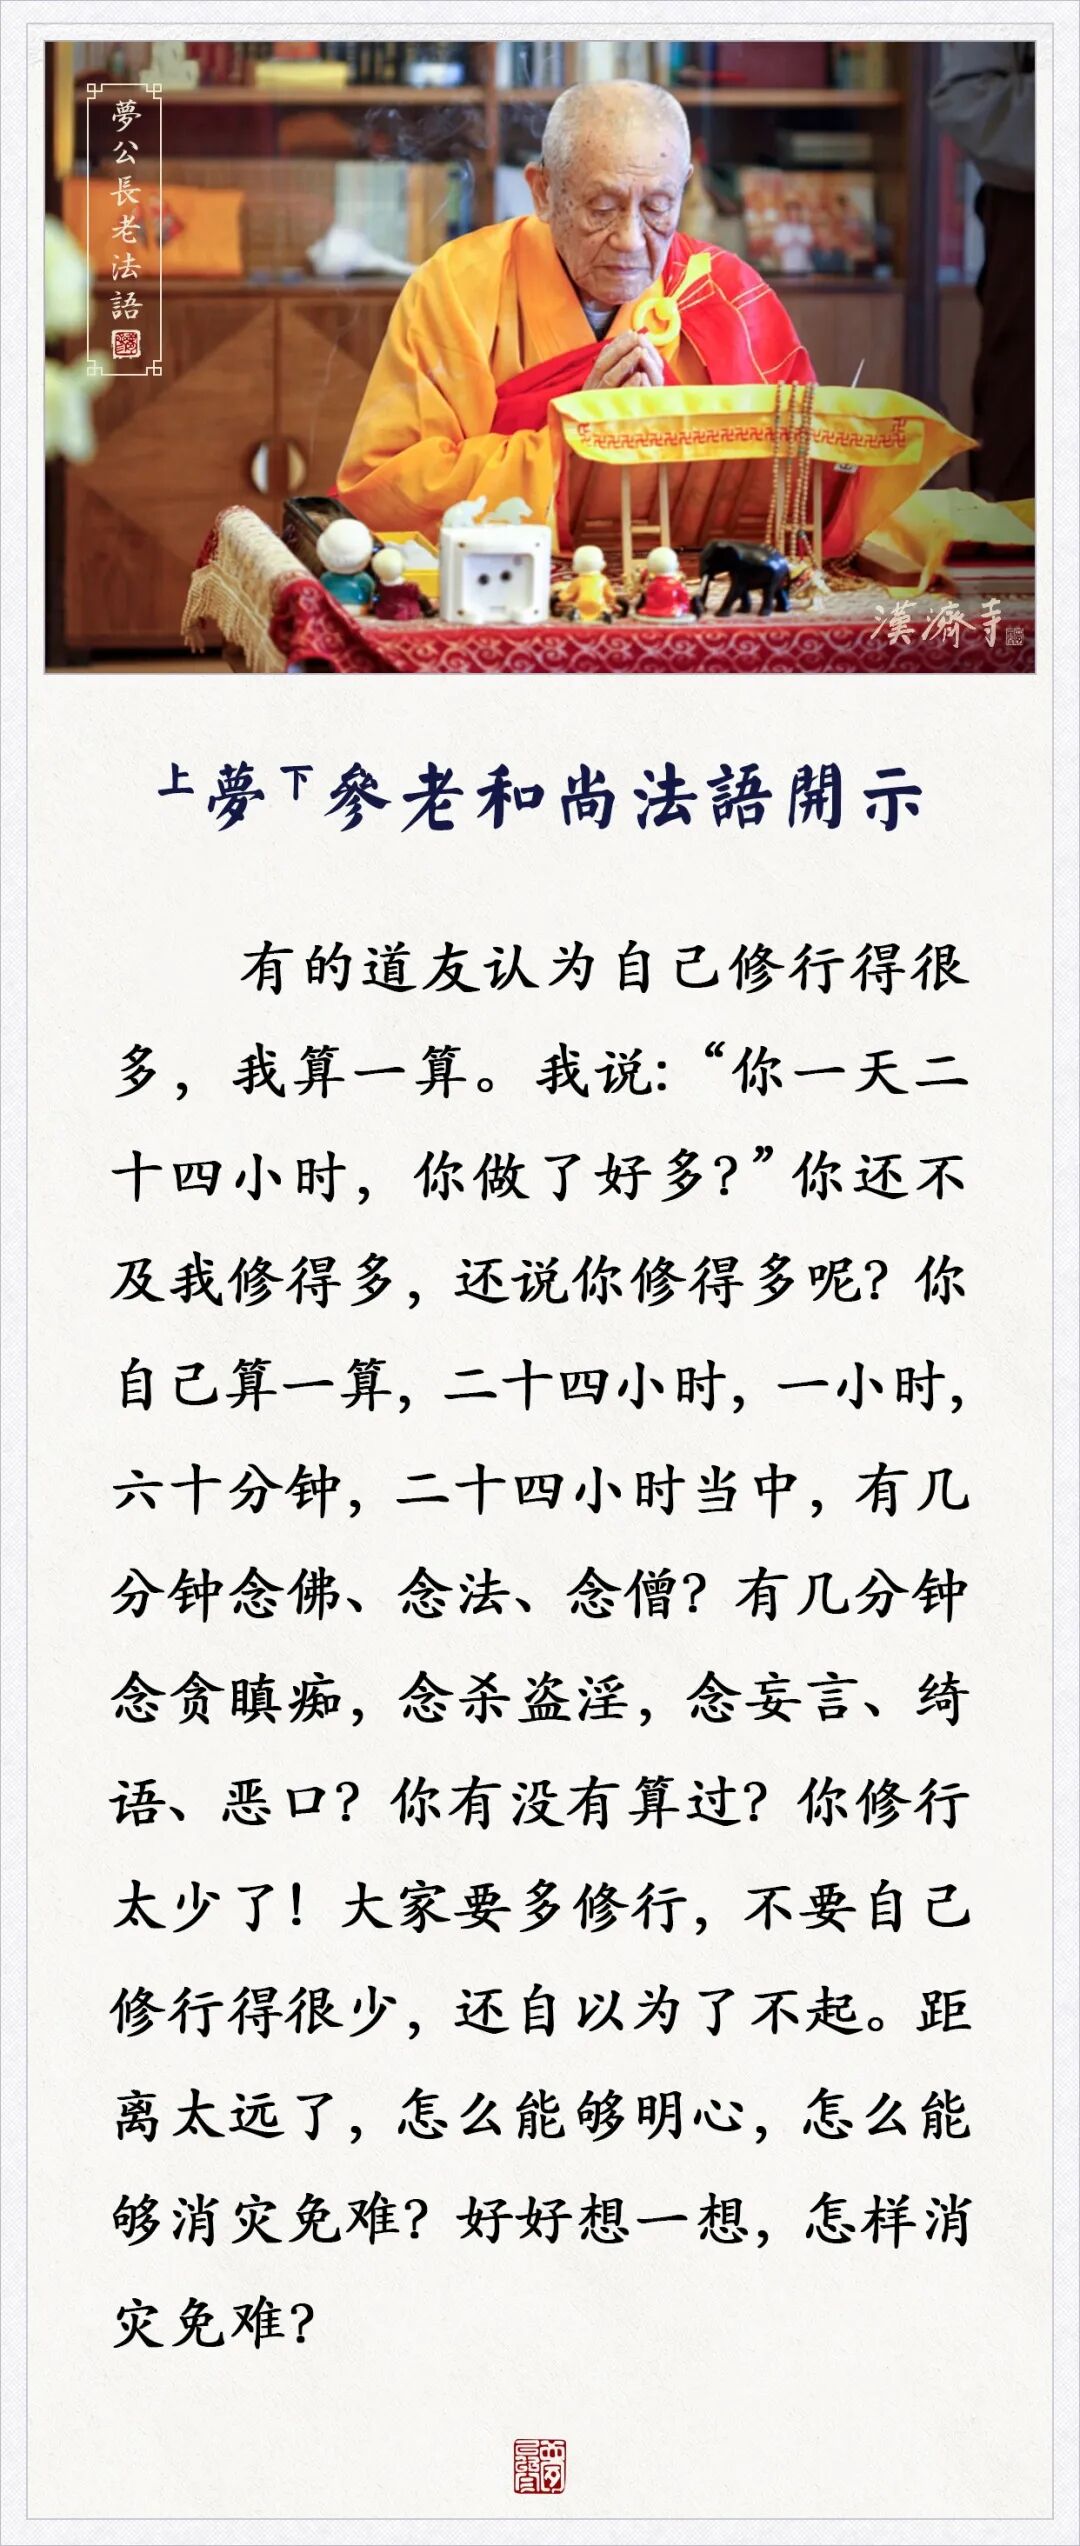 夢公長老法語
漢濟寺
上夢下參老和尚法語開示
有的道友认为自己修行得很
多，我算一算。我说：“你一天二
十四小时，你做了好多？”你还不
及我修得多，还说你修得多呢？你
自己算一算，二十四小时，一小时，
六十分钟，二十四小时当中，有几
分钟念佛、念法、念僧？有几分钟
念贪瞋痴，念杀盗淫，念妄言、绮
语、恶口？你有没有算过？你修行
太少了！大家要多修行，不要自己
修行得很少，还自以为了不起。距
离太远了，怎么能够明心，怎么能
够消灾免难？好好想一想，怎样消
灾免难？